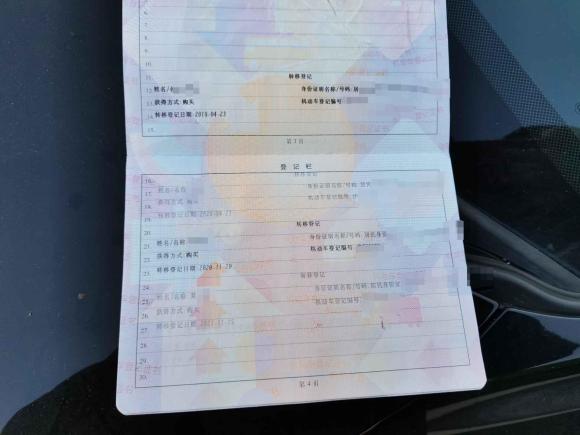 9.
10.
11. 转移登记
12. 姓名/ 身份证明名称/号码:居
13. 获得方式:购买 机动车登记编号
14. 转移登记日期:2019-04-23
15.
第 3 页
登 记 栏
16. 转移登记
17. 姓名/名称 身份证明名称/号码
18. 获得方式:购买 机动车登记编号
19. 转移登记日期
20. 转移登记
21. 姓名/名称 身份证明名称/号码:居民身份
22. 获得方式:购买 机动车登记编号
23. 转移登记日期:2020-11-20
24. 转移登记
25. 姓名/名称 身份证明名称/号码:居民身份证
26. 获得方式:购买 机动车登记编号:
27. 转移登记日期
28.
29.
30.
第 4 页